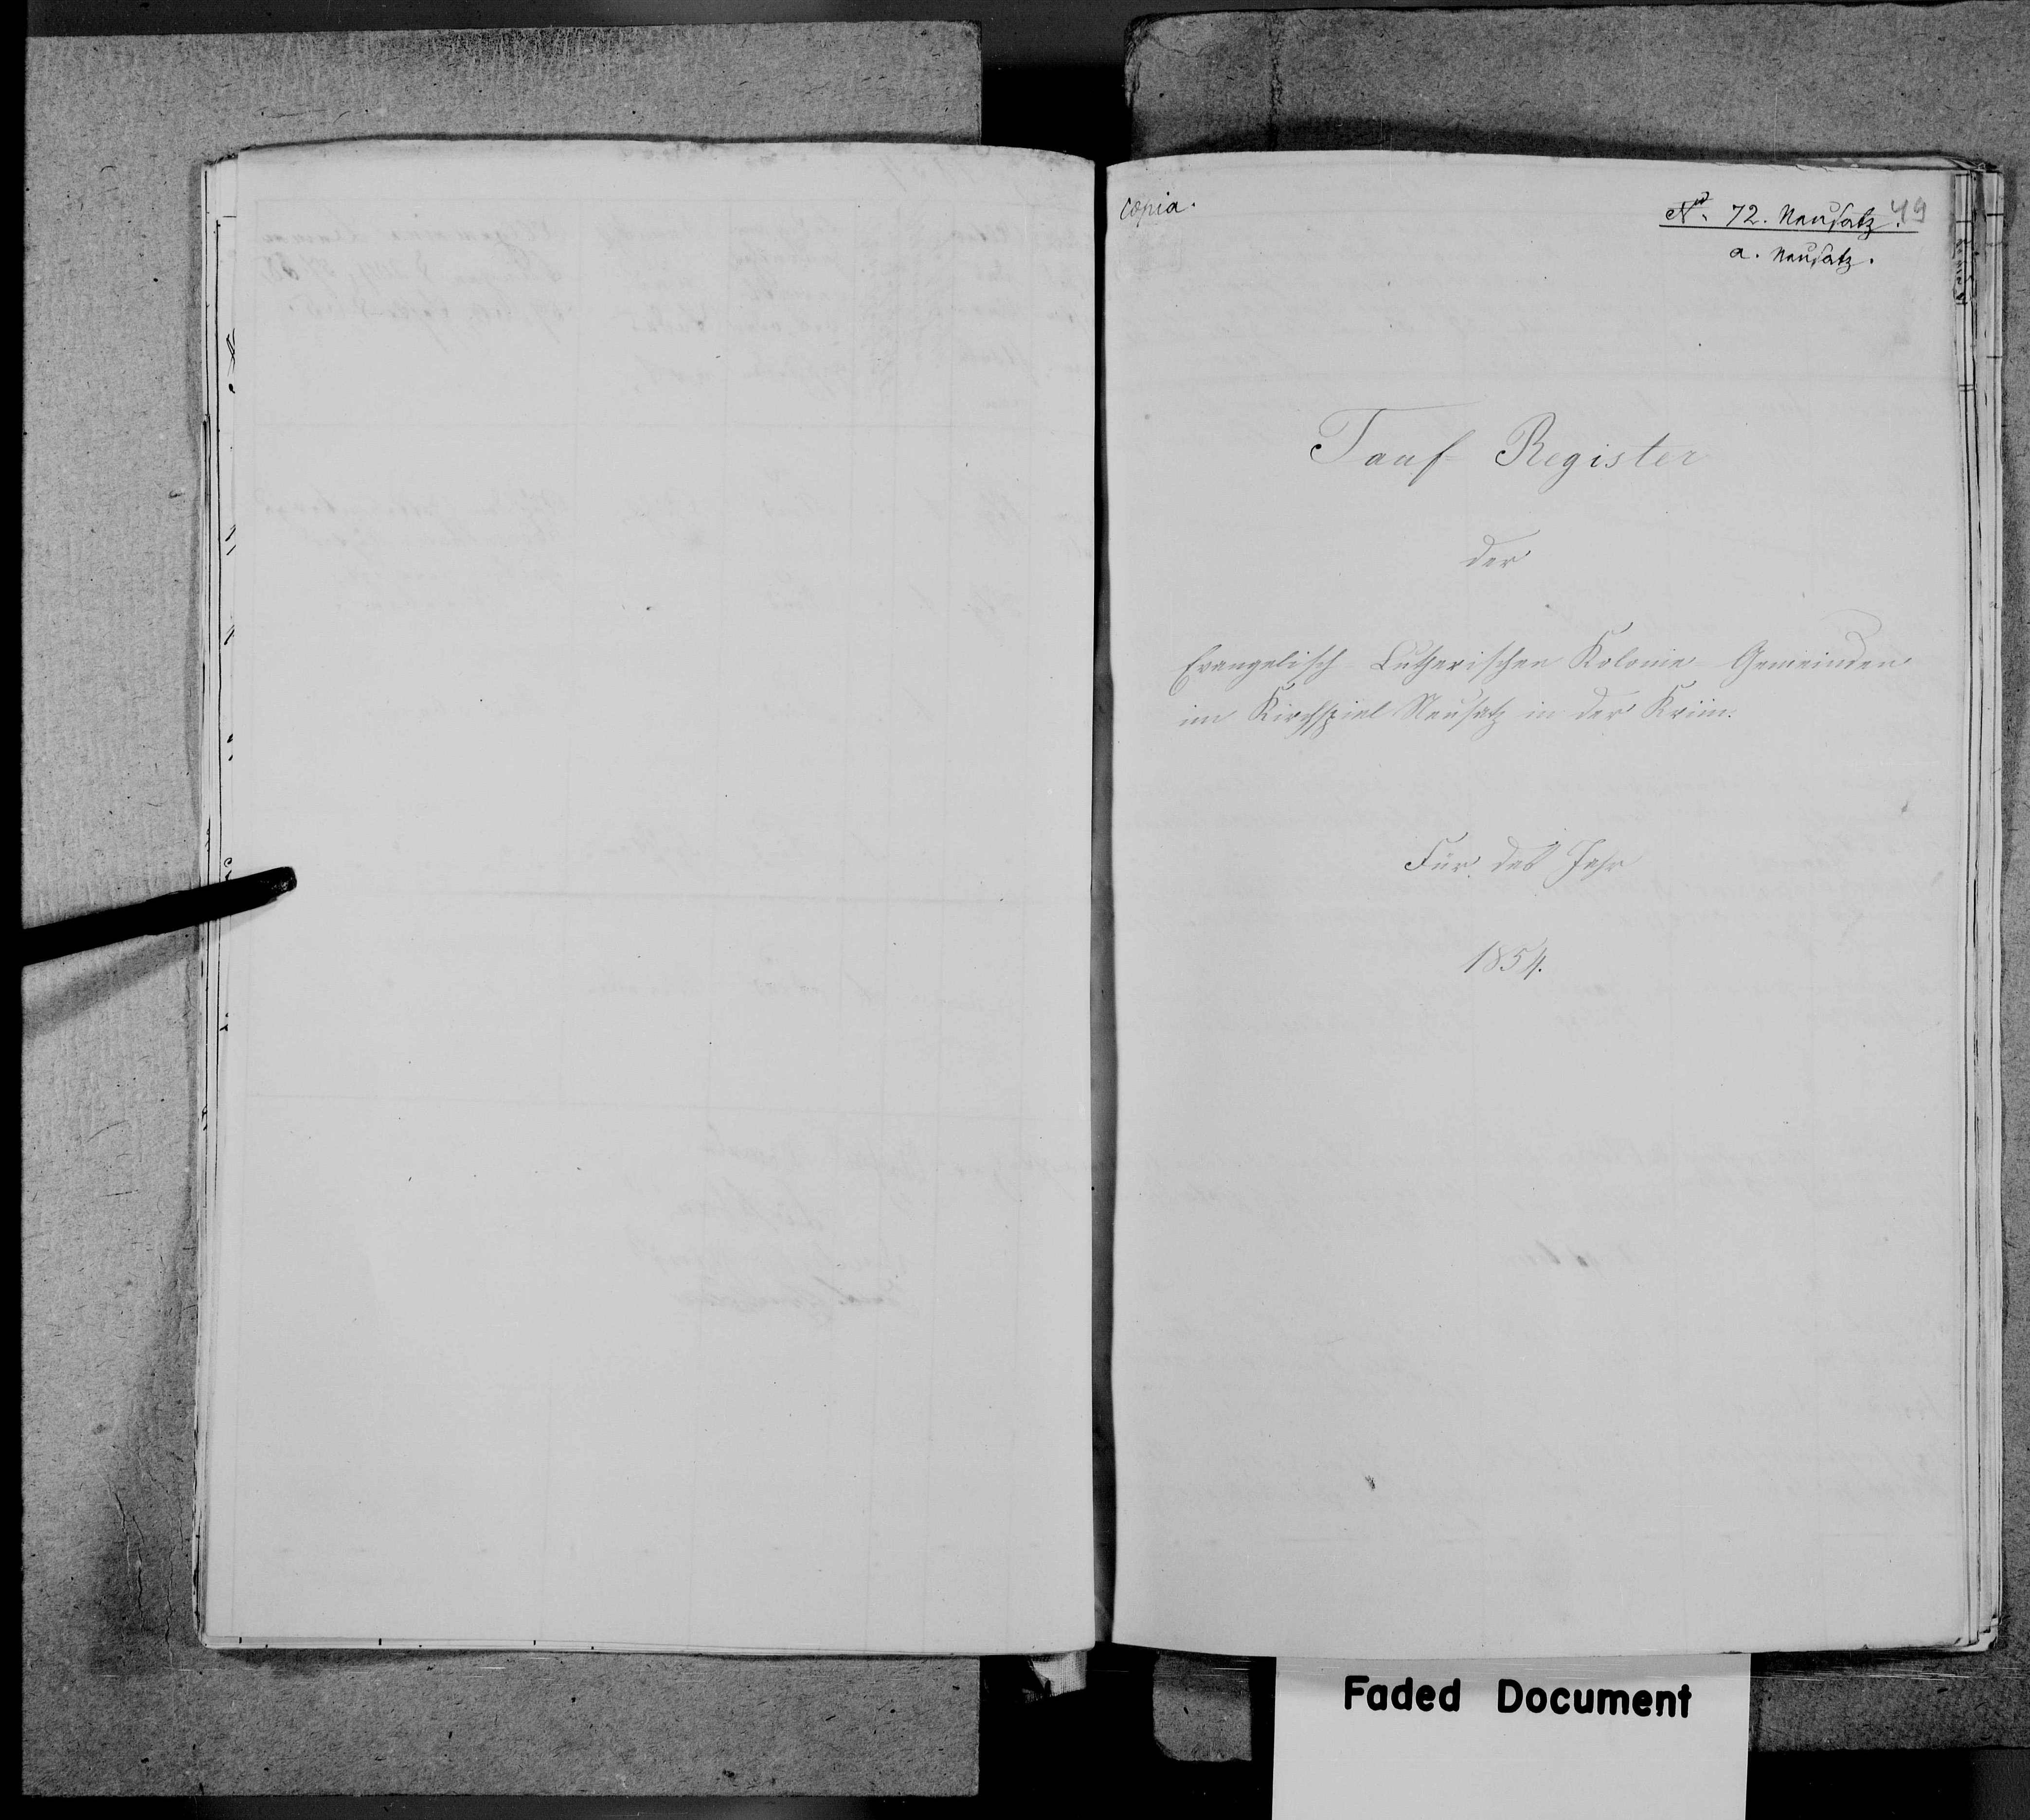 copia.
No. 72. Neusatz. 49
a. Neusatz.
Tauf-Register
der
Evangelisch-Lutherischen Kolonie-Gemeinden
im Kirchspiel Neusatz in der Krim.
Für das Jahr
1854.
Faded Document